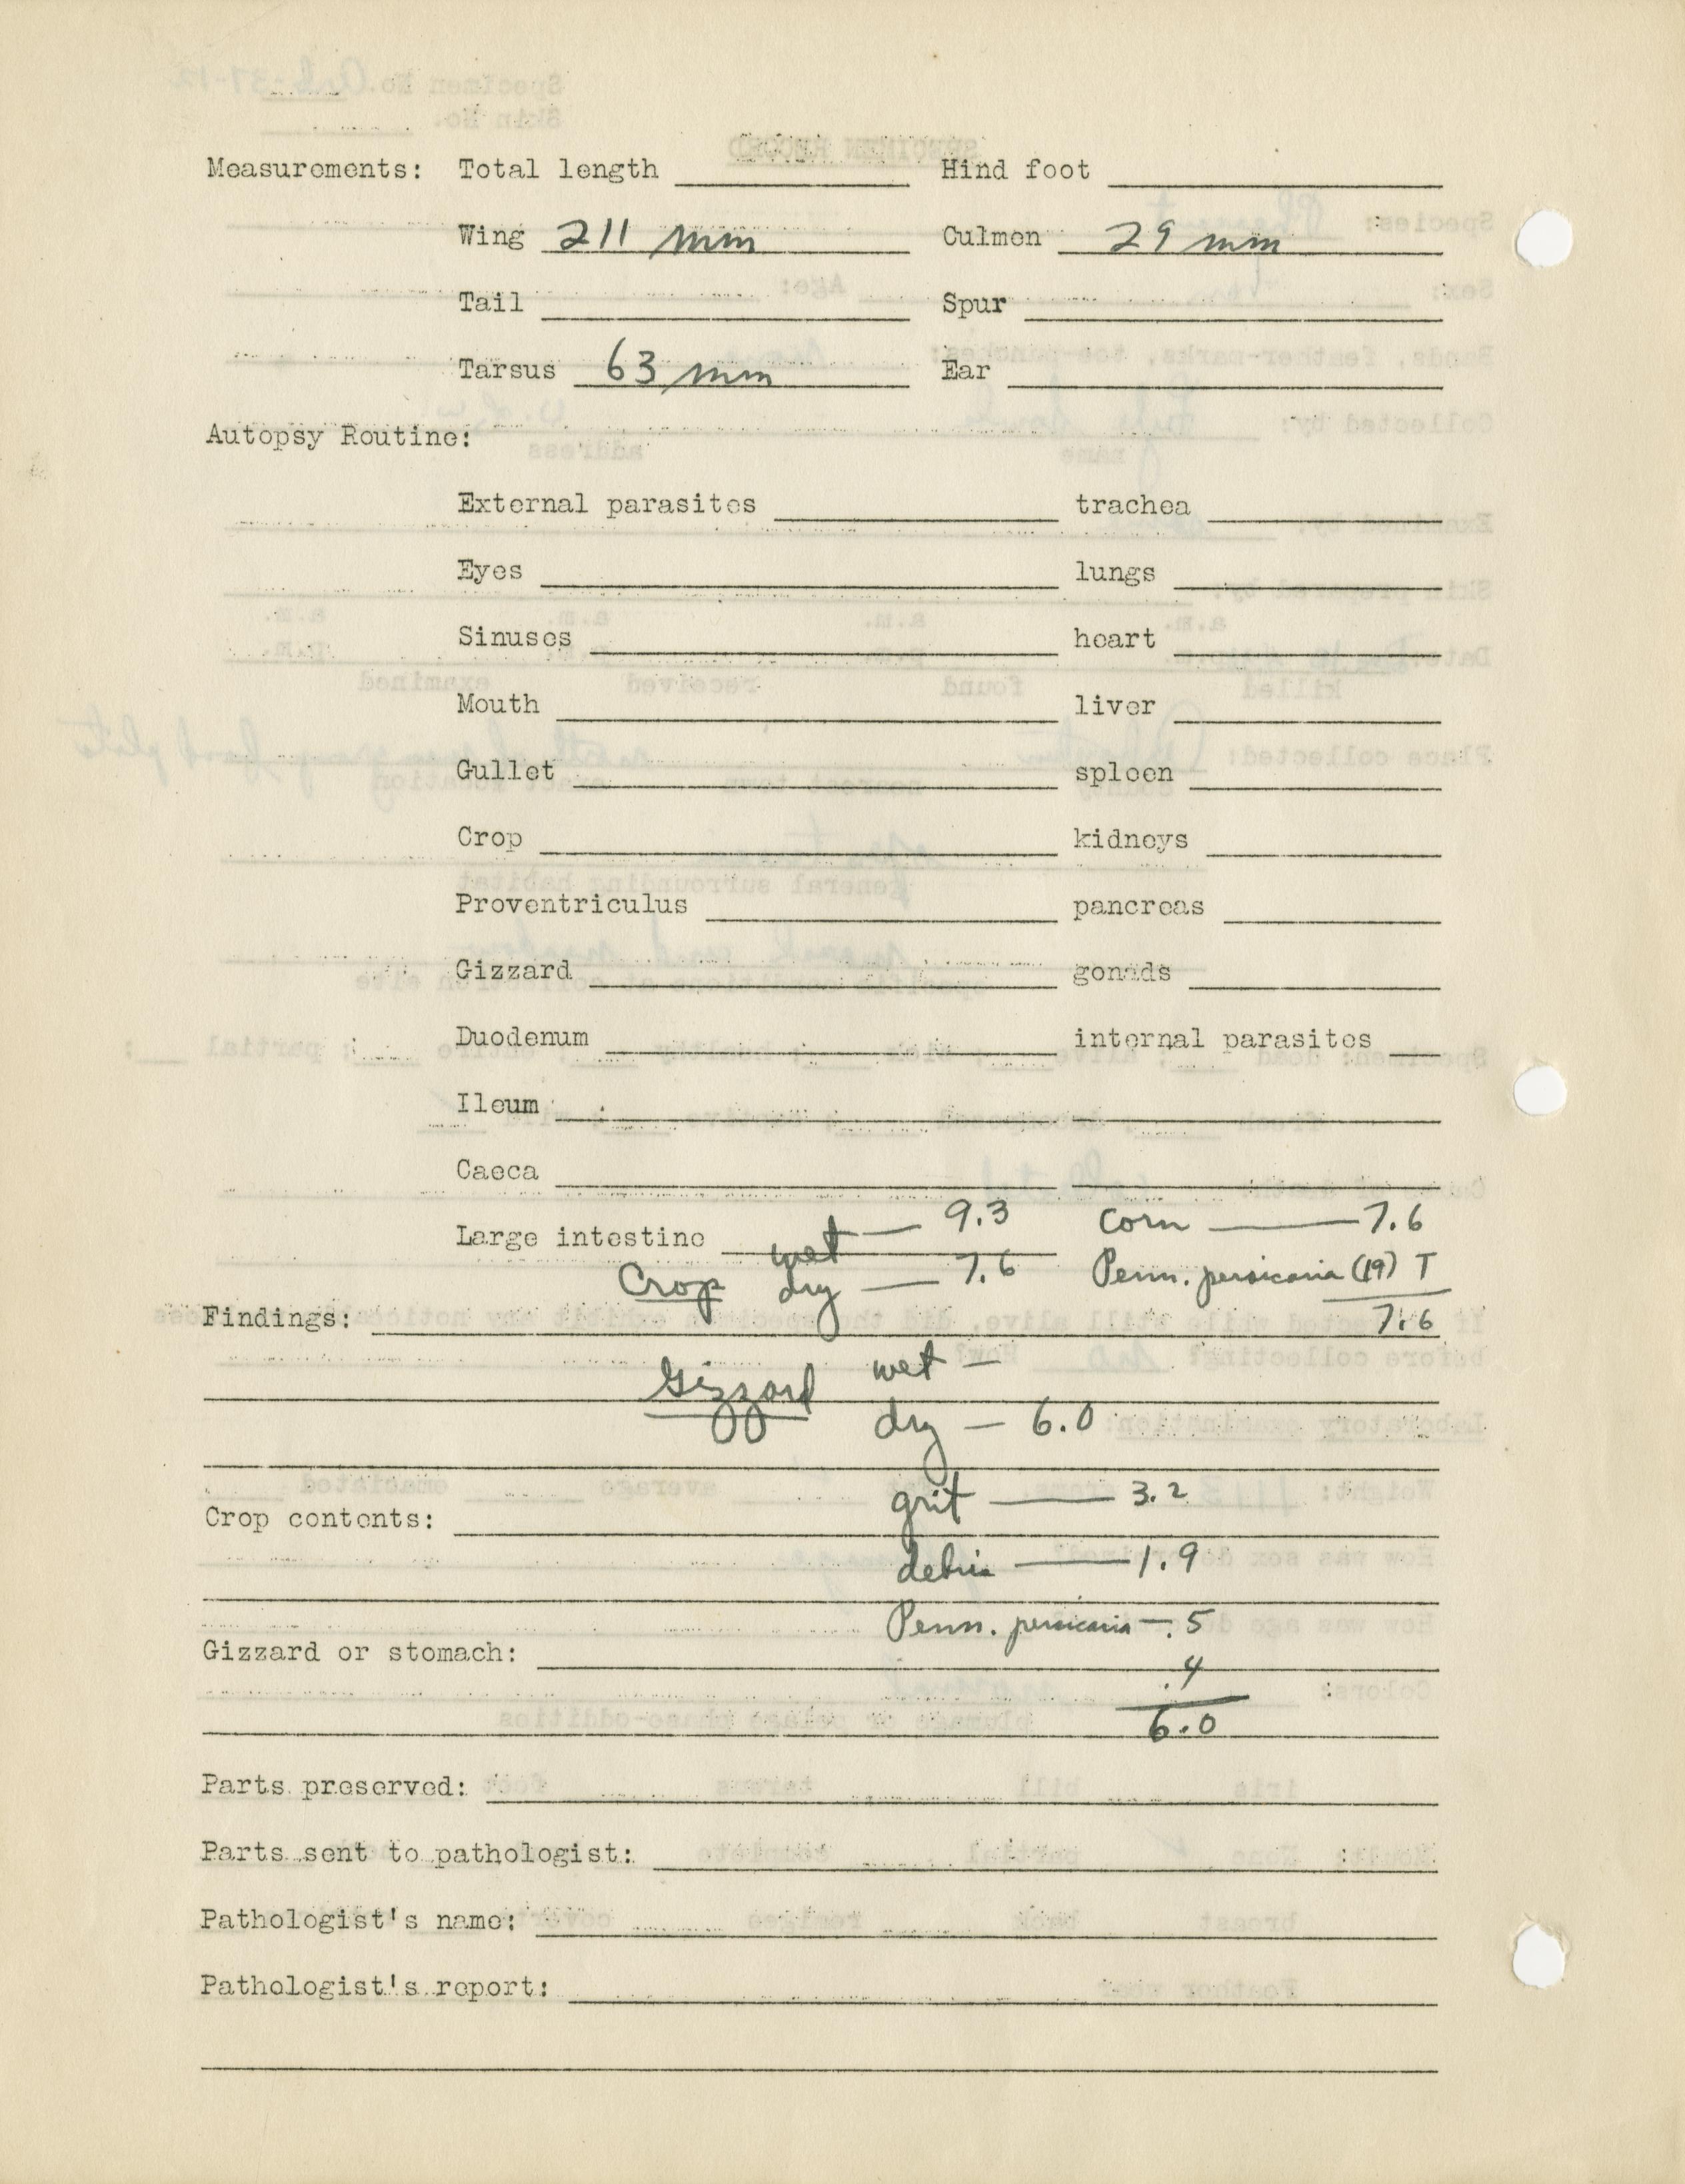 Measurements: Total length Hind foot
Wing 211 mm Culmen 29 mm
Tail Spur
Tarsus 63 mm Ear
Autopsy Routine:
External parasites trachea
Eyes lungs
Sinuses heart
Mouth liver
Gullet spleen
Crop kidneys
Proventriculus pancreas
Gizzard gonads
Duodenum internal parasites
Ileum
Caeca
Large intestine
Crop wet — 9.3 corn — 7.6
dry — 7.6 Penn. persicaria (19) T
7.6
Findings:
Gizzard wet —
dry — 6.0
grit — 3.2
Crop contents:
debris — 1.9
Penn. persicaria — .5
Gizzard or stomach:
.4
6.0
Parts preserved:
Parts sent to pathologist:
Pathologist's name:
Pathologist's report: